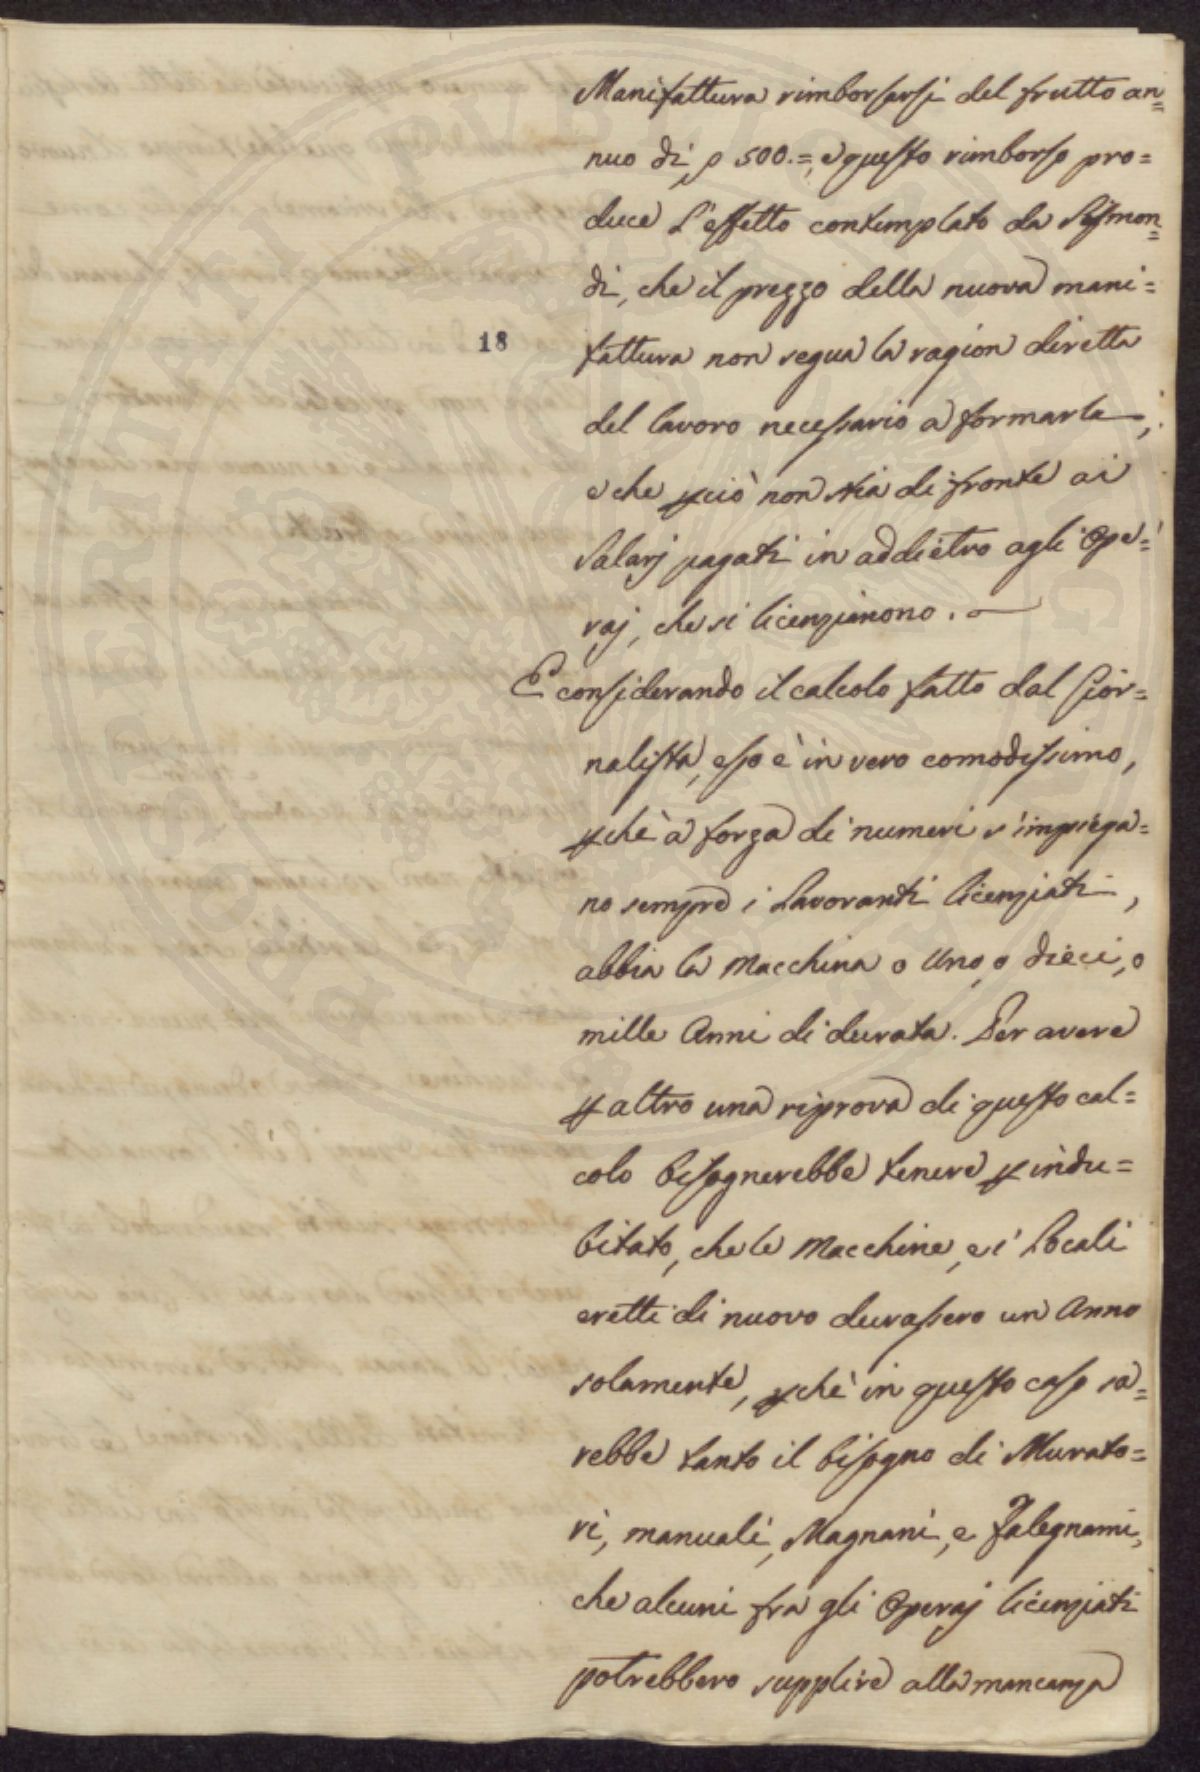 Manifattura rimborsarsi del frutto an=
nuo di 500.=, e questo rimborso pro=
duce l'effetto contemplato da Sismon=
di, che il prezzo della nuova mani=
18
fattura non segua la ragion diretta
del lavoro necessario a formarla,
e che pciò non stia di fronte ai
Salarj pagati in addietro agli Ope=
raj, che si licenziarono.
E considerando il calcolo fatto dal Gior=
nalista, esso è in vero comodissimo,
pchè a forza di numeri s'impiega=
no sempre i Lavoranti licenziati,
abbia la Macchina o Uno, o dieci, o
mille Anni di durata. Per avere
p altro una riprova di questo cal=
colo bisognerebbe tenere p indu=
bitato, che le Macchine, e i Locali
eretti di nuovo durassero un Anno
solamente, pchè in questo caso sa=
rebbe tanto il bisogno di Murato=
ri, manuali, Magnani, e Falegnami,
che alcuni fra gli Operaj licenziati
potrebbero supplire alla mancanza